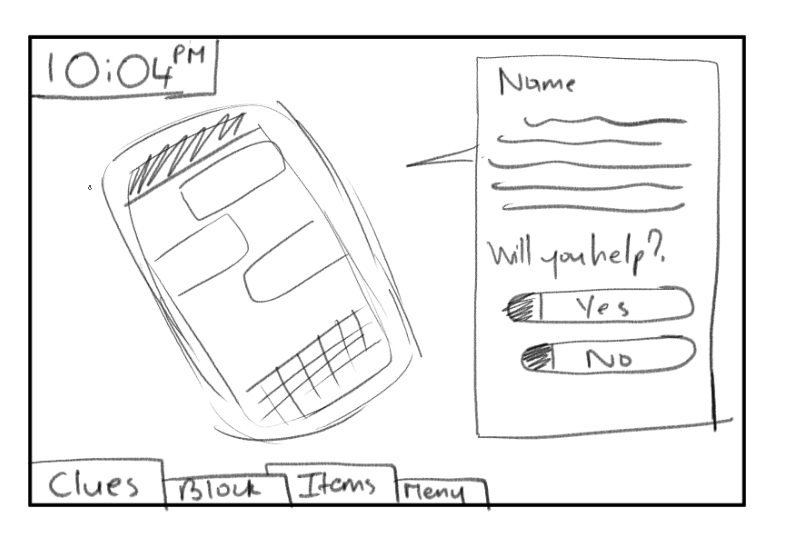 10:04 PM
Name
Will you help?
Yes
No
Clues
Block
Items
Menu